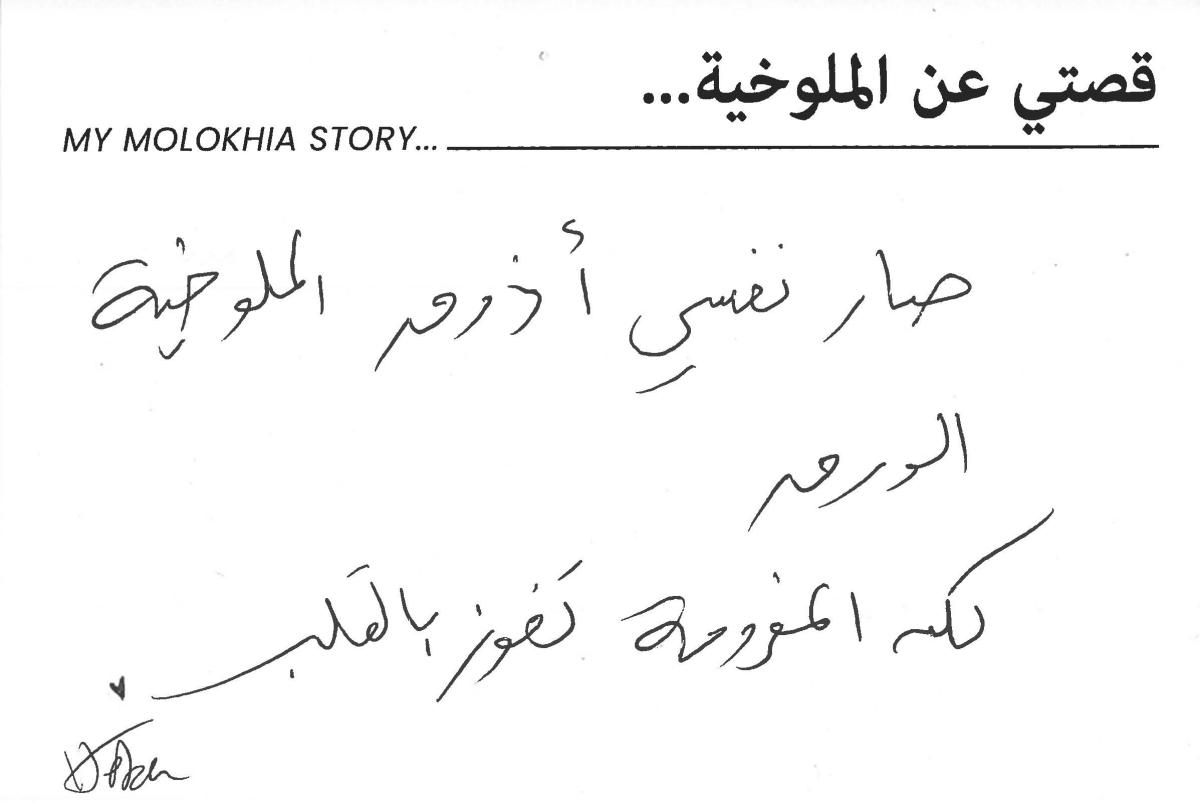 قصتي عن الملوخية...
MY MOLOKHIA STORY...
صار نفسي أذوق الملوخية
الورق
لكن المفرومة تفوز بالقلب ♥